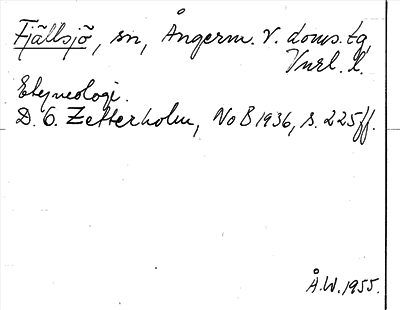 Fjällsjö, sn, Ångerm. V. doms. tg,
Vnrl. l.
Etymologi.
D. O. Zetterholm, NoB 1936, s. 225 ff.
Å.W. 1955.